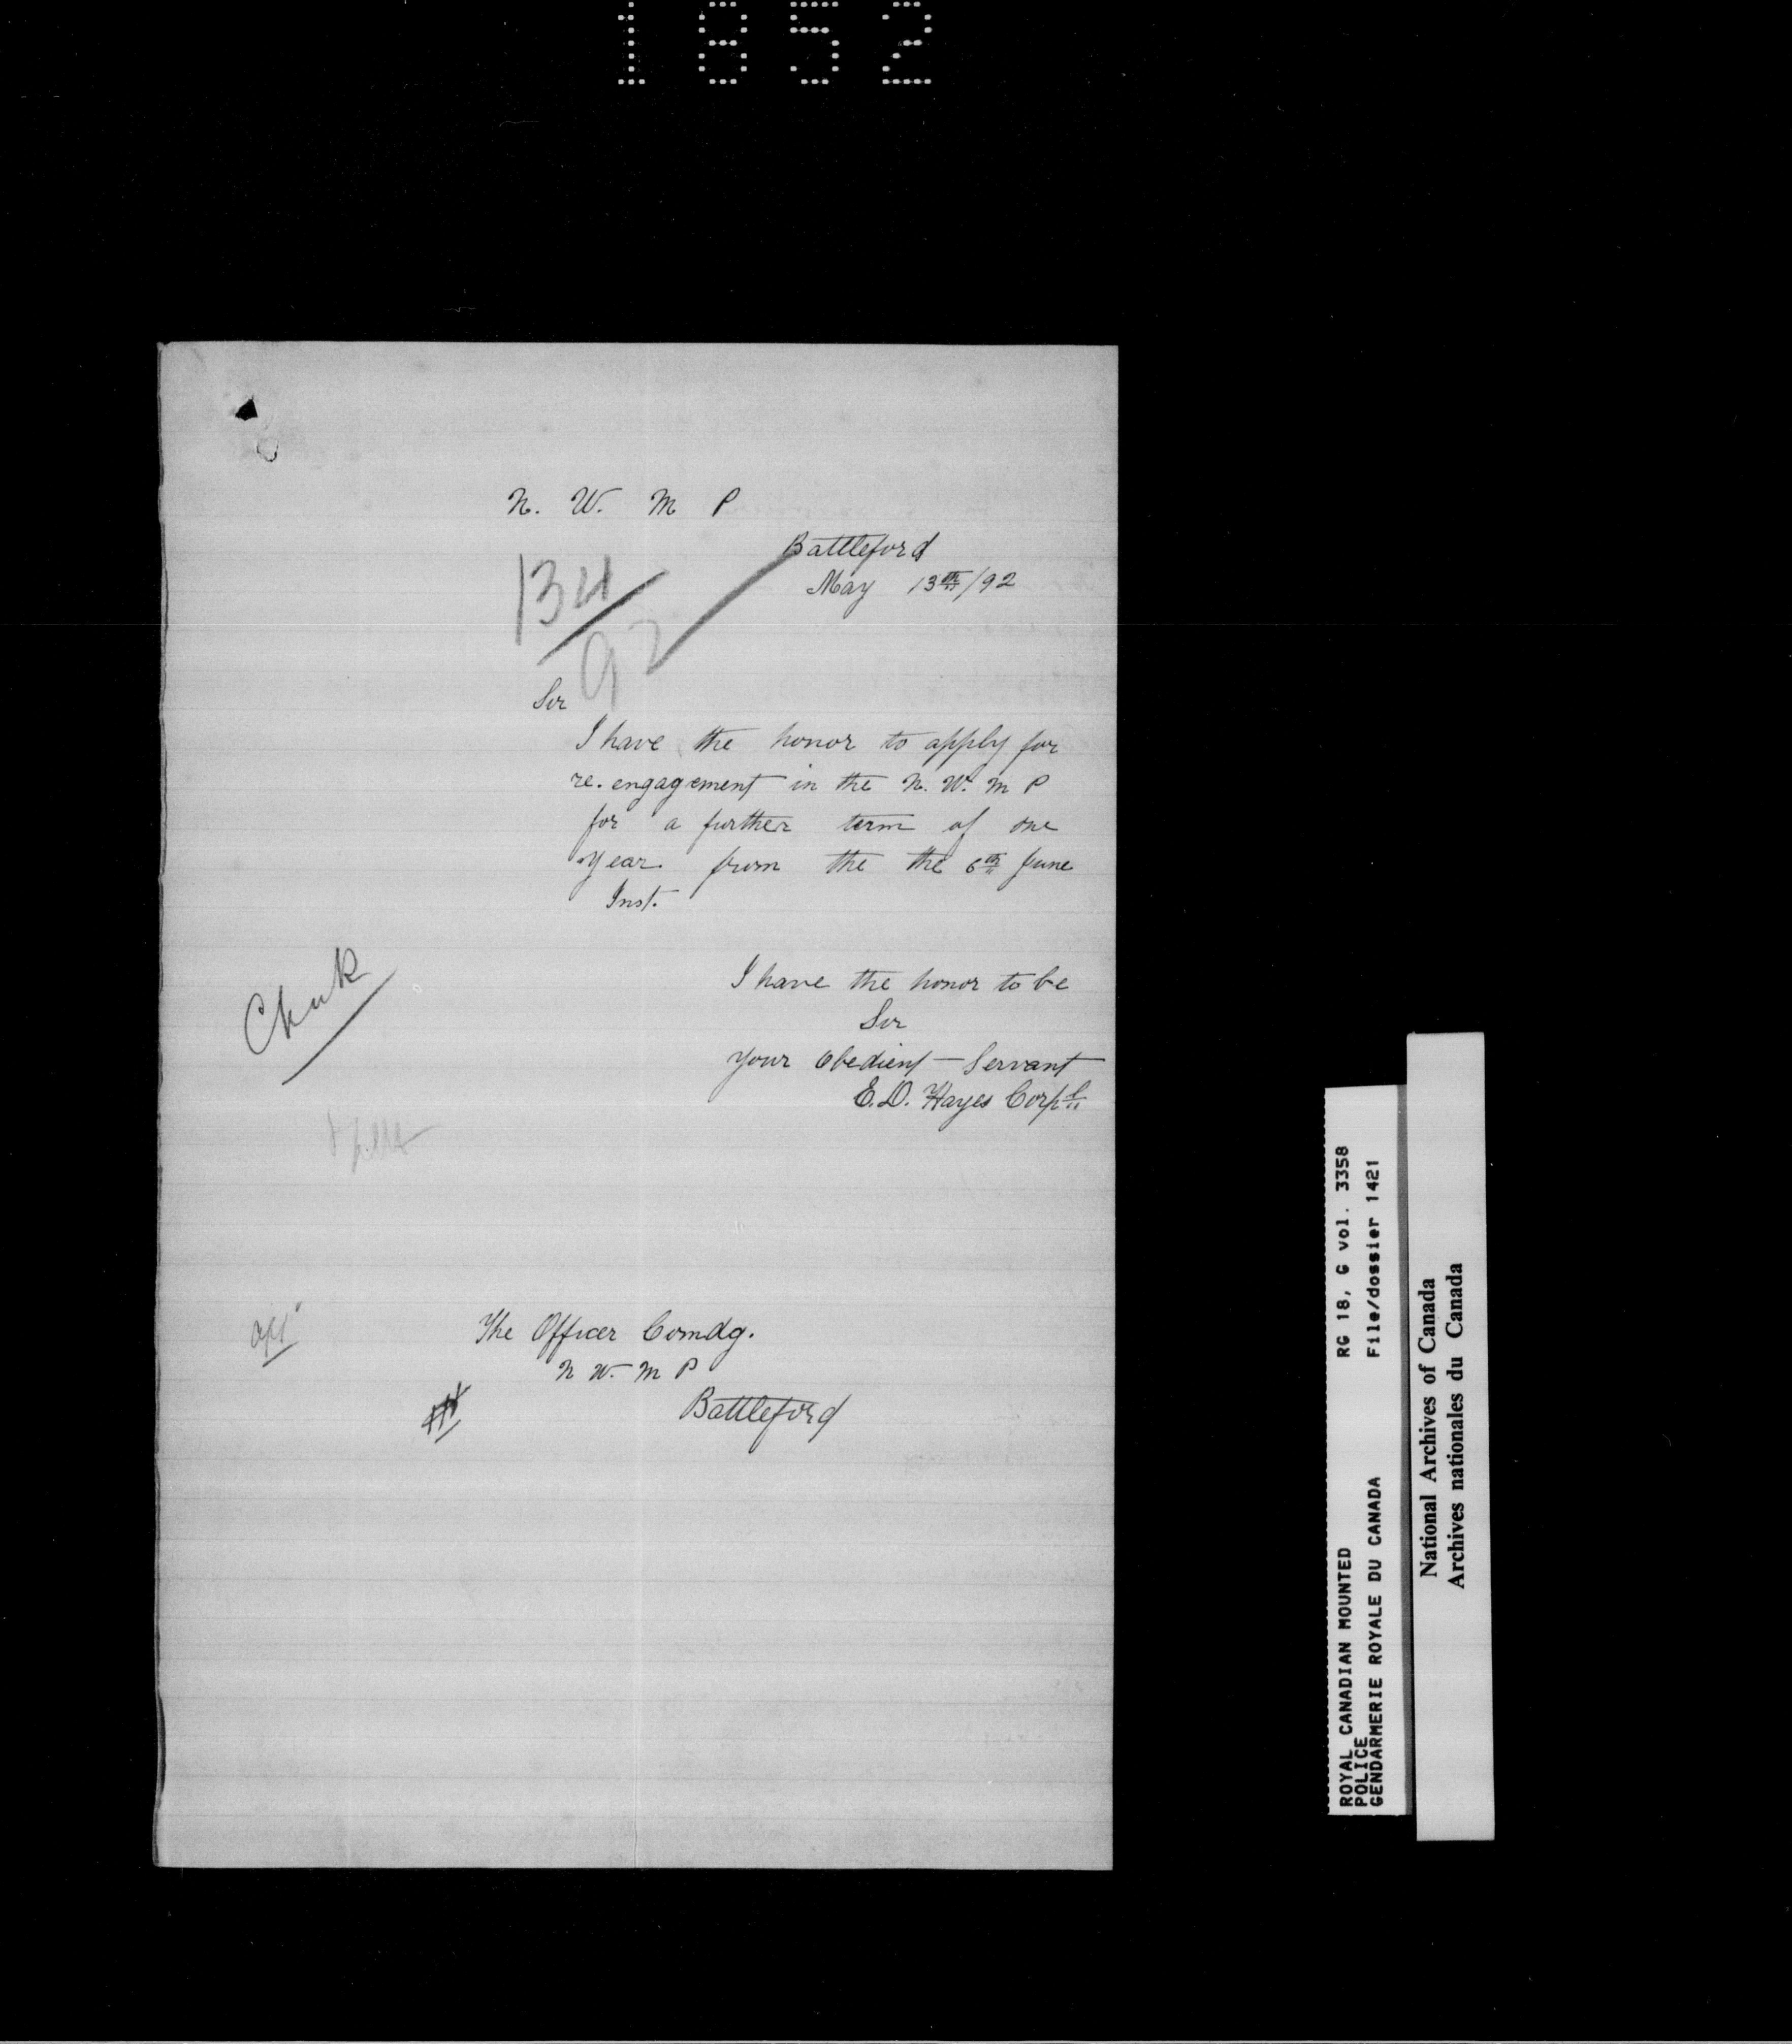 1852
N. W. M P
Battleford
May 13th/92
134
92
Sir
I have the honor to apply for
re.engagement in the N. W. M P
for a further term of one
year from the the 6th June
Inst.
I have the honor to be
Sir
Your Obedient Servant
E. D. Hayes Corpl
The Officer Comdg.
N W. M P
Battleford
ROYAL CANADIAN MOUNTED
POLICE
GENDARMERIE ROYALE DU CANADA
RG 18, G vol. 3358
File/dossier 1421
National Archives of Canada
Archives nationales du Canada